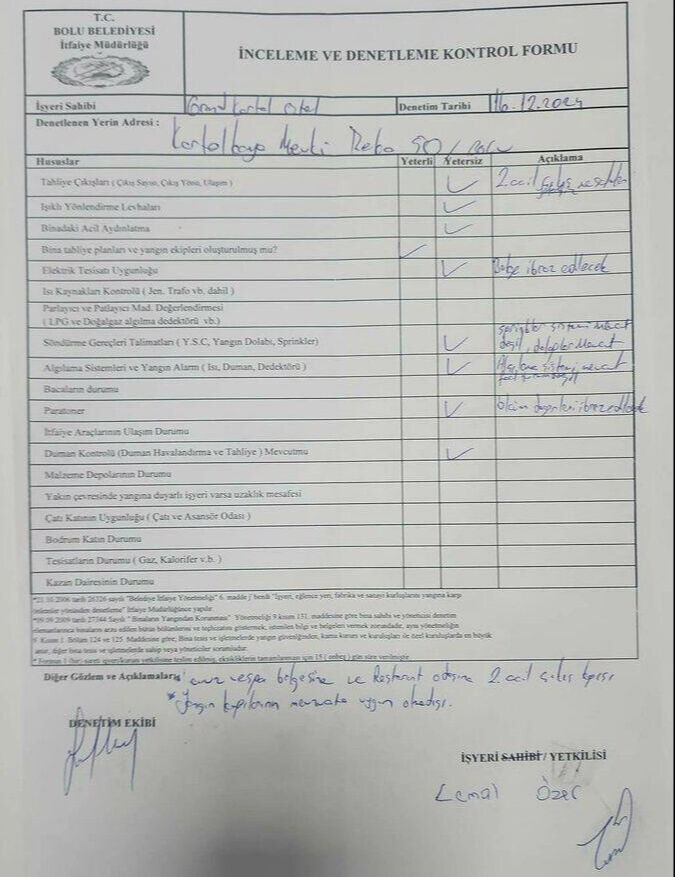 T.C.
BOLU BELEDİYESİ
İtfaiye Müdürlüğü
İNCELEME VE DENETLEME KONTROL FORMU
İşyeri Sahibi Grand Kartal Otel Denetim Tarihi 16.12.2024
Denetlenen Yerin Adresi : Kartalkaya Mevki
Hususlar Yeterli Yetersiz Açıklama
Tahliye Çıkışları ( Çıkış Sayısı, Çıkış Yönü, Ulaşım ) ✓ 2. acil çıkış
Işıklı Yönlendirme Levhaları ✓
Binadaki Acil Aydınlatma ✓
Bina tahliye planları ve yangın ekipleri oluşturulmuş mu? ✓
Elektrik Tesisatı Uygunluğu ✓ Belge ibraz edilecek
Isı Kaynakları Kontrolü ( Jen. Trafo vb. dahil )
Parlayıcı ve Patlayıcı Mad. Değerlendirmesi
( LPG ve Doğalgaz algılma dedektörü vb.)
Söndürme Gereçleri Talimatları ( Y.S.C, Yangın Dolabı, Sprinkler) ✓ sprinkler sistemi mevcut
değil, dolaplar mevcut
Algılama Sistemleri ve Yangın Alarm ( Isı, Duman, Dedektörü ) ✓ Algılama sistemi mevcut
Bacaların durumu
Paratoner ✓ ölçüm değerleri ibraz edilecek
İtfaiye Araçlarının Ulaşım Durumu
Duman Kontrolü (Duman Havalandırma ve Tahliye ) Mevcutmu ✓
Malzeme Depolarının Durumu
Yakın çevresinde yangına duyarlı işyeri varsa uzaklık mesafesi
Çatı Katının Uygunluğu ( Çatı ve Asansör Odası )
Bodrum Katın Durumu
Tesisatların Durumu ( Gaz, Kalorifer v.b. )
Kazan Dairesinin Durumu
*21.10.2006 tarih 26326 sayılı "Belediye İtfaiye Yönetmeliği" 6. madde j bendi "İşyeri, eğlence yeri, fabrika ve sanayi kuruluşlarını yangına karşı
önlemler yönünden denetleme" İtfaiye Müdürlüğünce yapılır.
*09.09.2009 tarih 27344 Sayılı " Binaların Yangından Korunması" Yönetmeliği 9.kısım 131. maddesine göre bina sahibi ve yöneticisi denetim
elemanlarınca binaların arzu edilen bütün bölümlerini ve teçhizatını göstermek, istenilen bilgi ve belgeleri vermek zorundadır, aynı yönetmeliğin
9. Kısım 1. Bölüm 124 ve 125. Maddesine göre, Bina tesis ve işletmelerde yangın güvenliğinden, kamu kurum ve kuruluşları ile özel kuruluşlarda en büyük
amir, diğer bina tesis ve işletmelerde sahip veya yöneticiler sorumludur.
* Formun 1 (bir) sureti işyeri/kurum yetkilisine teslim edilmiş, eksikliklerin tamamlanması için 15 ( onbeş ) gün süre verilmiştir.
Diğer Gözlem ve Açıklamalar: ve Restorant odasına 2. acil çıkış kapısı
* Yangın kapılarının mevzuata uygun olmadığı.
DENETİM EKİBİ
İŞYERİ SAHİBİ / YETKİLİSİ
Kemal Özer